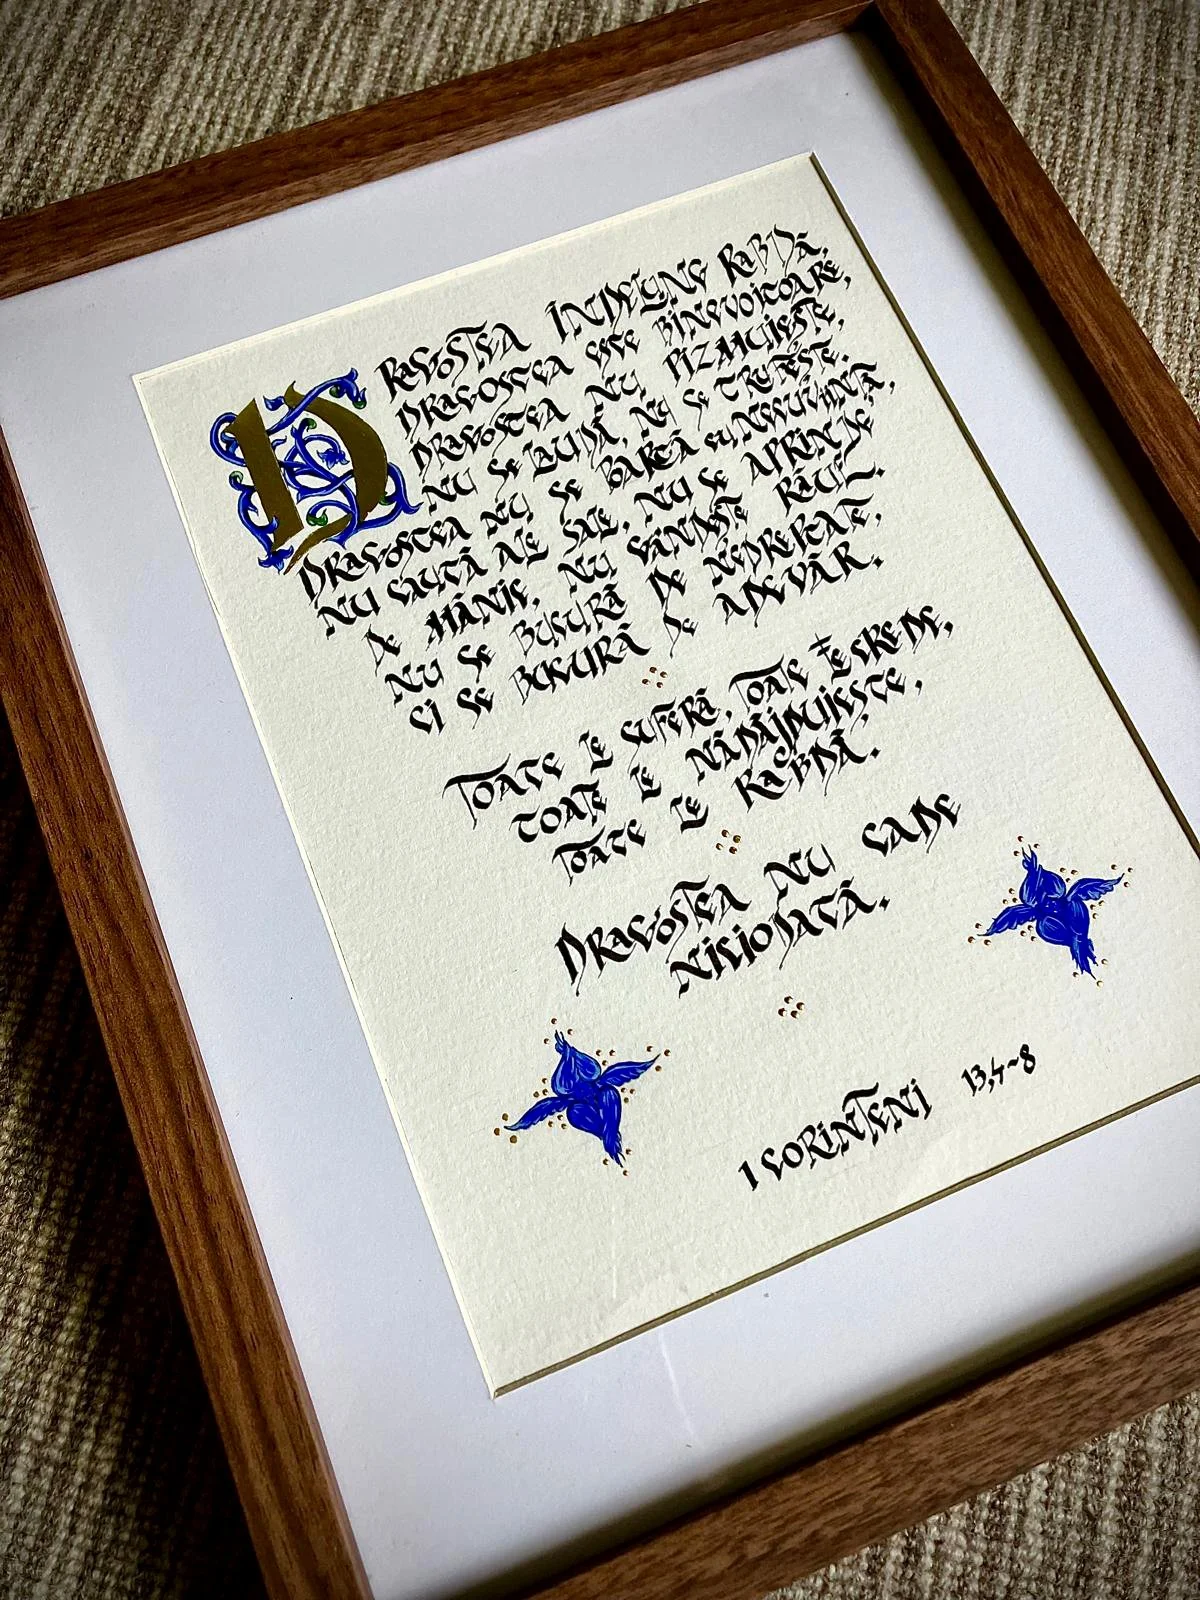 DRAGOSTEA ÎNDELUNG RABDĂ.
DRAGOSTEA ESTE BINEVOITOARE,
DRAGOSTEA NU PIZMUIEȘTE,
NU SE LAUDĂ, NU SE TRUFEȘTE.
DRAGOSTEA NU SE POARTĂ CU NECUVIINȚĂ,
NU CAUTĂ ALE SALE, NU SE APRINDE
DE MÂNIE, NU GÂNDEȘTE RĂUL.
NU SE BUCURĂ DE NEDREPTATE,
CI SE BUCURĂ DE ADEVĂR.
TOATE LE SUFERĂ, TOATE LE CREDE,
TOATE LE NĂDĂJDUIEȘTE,
TOATE LE RABDĂ.
DRAGOSTEA NU CADE
NICIODATĂ.
1 CORINTENI 13,4~8